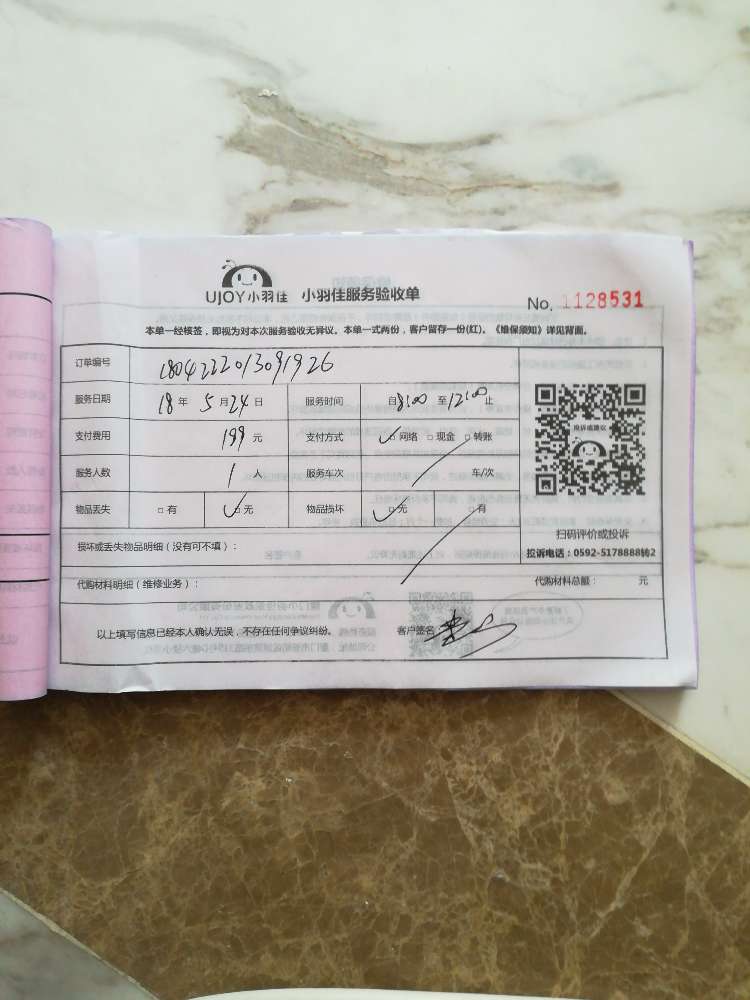 UJOY小羽佳 小羽佳服务验收单
No. 1128531
本单一经核签，即视为对本次服务验收无异议。本单一式两份，客户留存一份(红)。《维保须知》详见背面。
订单编号 1804222013091926
服务日期 18 年 5 月 24 日 服务时间 自 8:00 至 12:00 止
支付费用 199 元 支付方式 ✓□ 网络 □ 现金 □ 转账
服务人数 1 人 服务车次 车/次
物品丢失 □ 有 ✓□ 无 物品损坏 ✓□ 无 □ 有
投诉或建议
扫码评价或投诉
投诉电话：0592-5178888转2
损坏或丢失物品明细（没有可不填）：
代购材料明细（维修业务）： 代购材料总额： 元
以上填写信息已经本人确认无误，不存在任何争议纠纷。 客户签名：